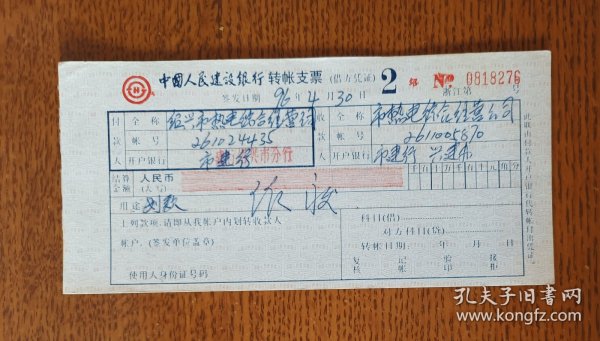 中国人民建设银行 转帐支票 (借方凭证) 2 No 0818276
签发日期 96 年 4 月 30 日 浙江第 号
付款人 全称 绍兴市热电综合经营公司
帐号 261024435
开户银行 市建行
收款人 全称 市热电综合经营公司
帐号 261005870
开户银行 市建行
结算金额 人民币(大写)
千 百 十 万 千 百 十 元 角 分
作废
用途 划款
上列款项,请即从我帐户内划转收款人
帐户。(签发单位盖章)
使用人身份证号码
科目(借)
对方科目(贷)
转帐日期: 年 月 日
复核 记帐 验印 接柜
此联由付款人开户银行代转帐付出凭证。
孔夫子旧书网
www.kongfz.com